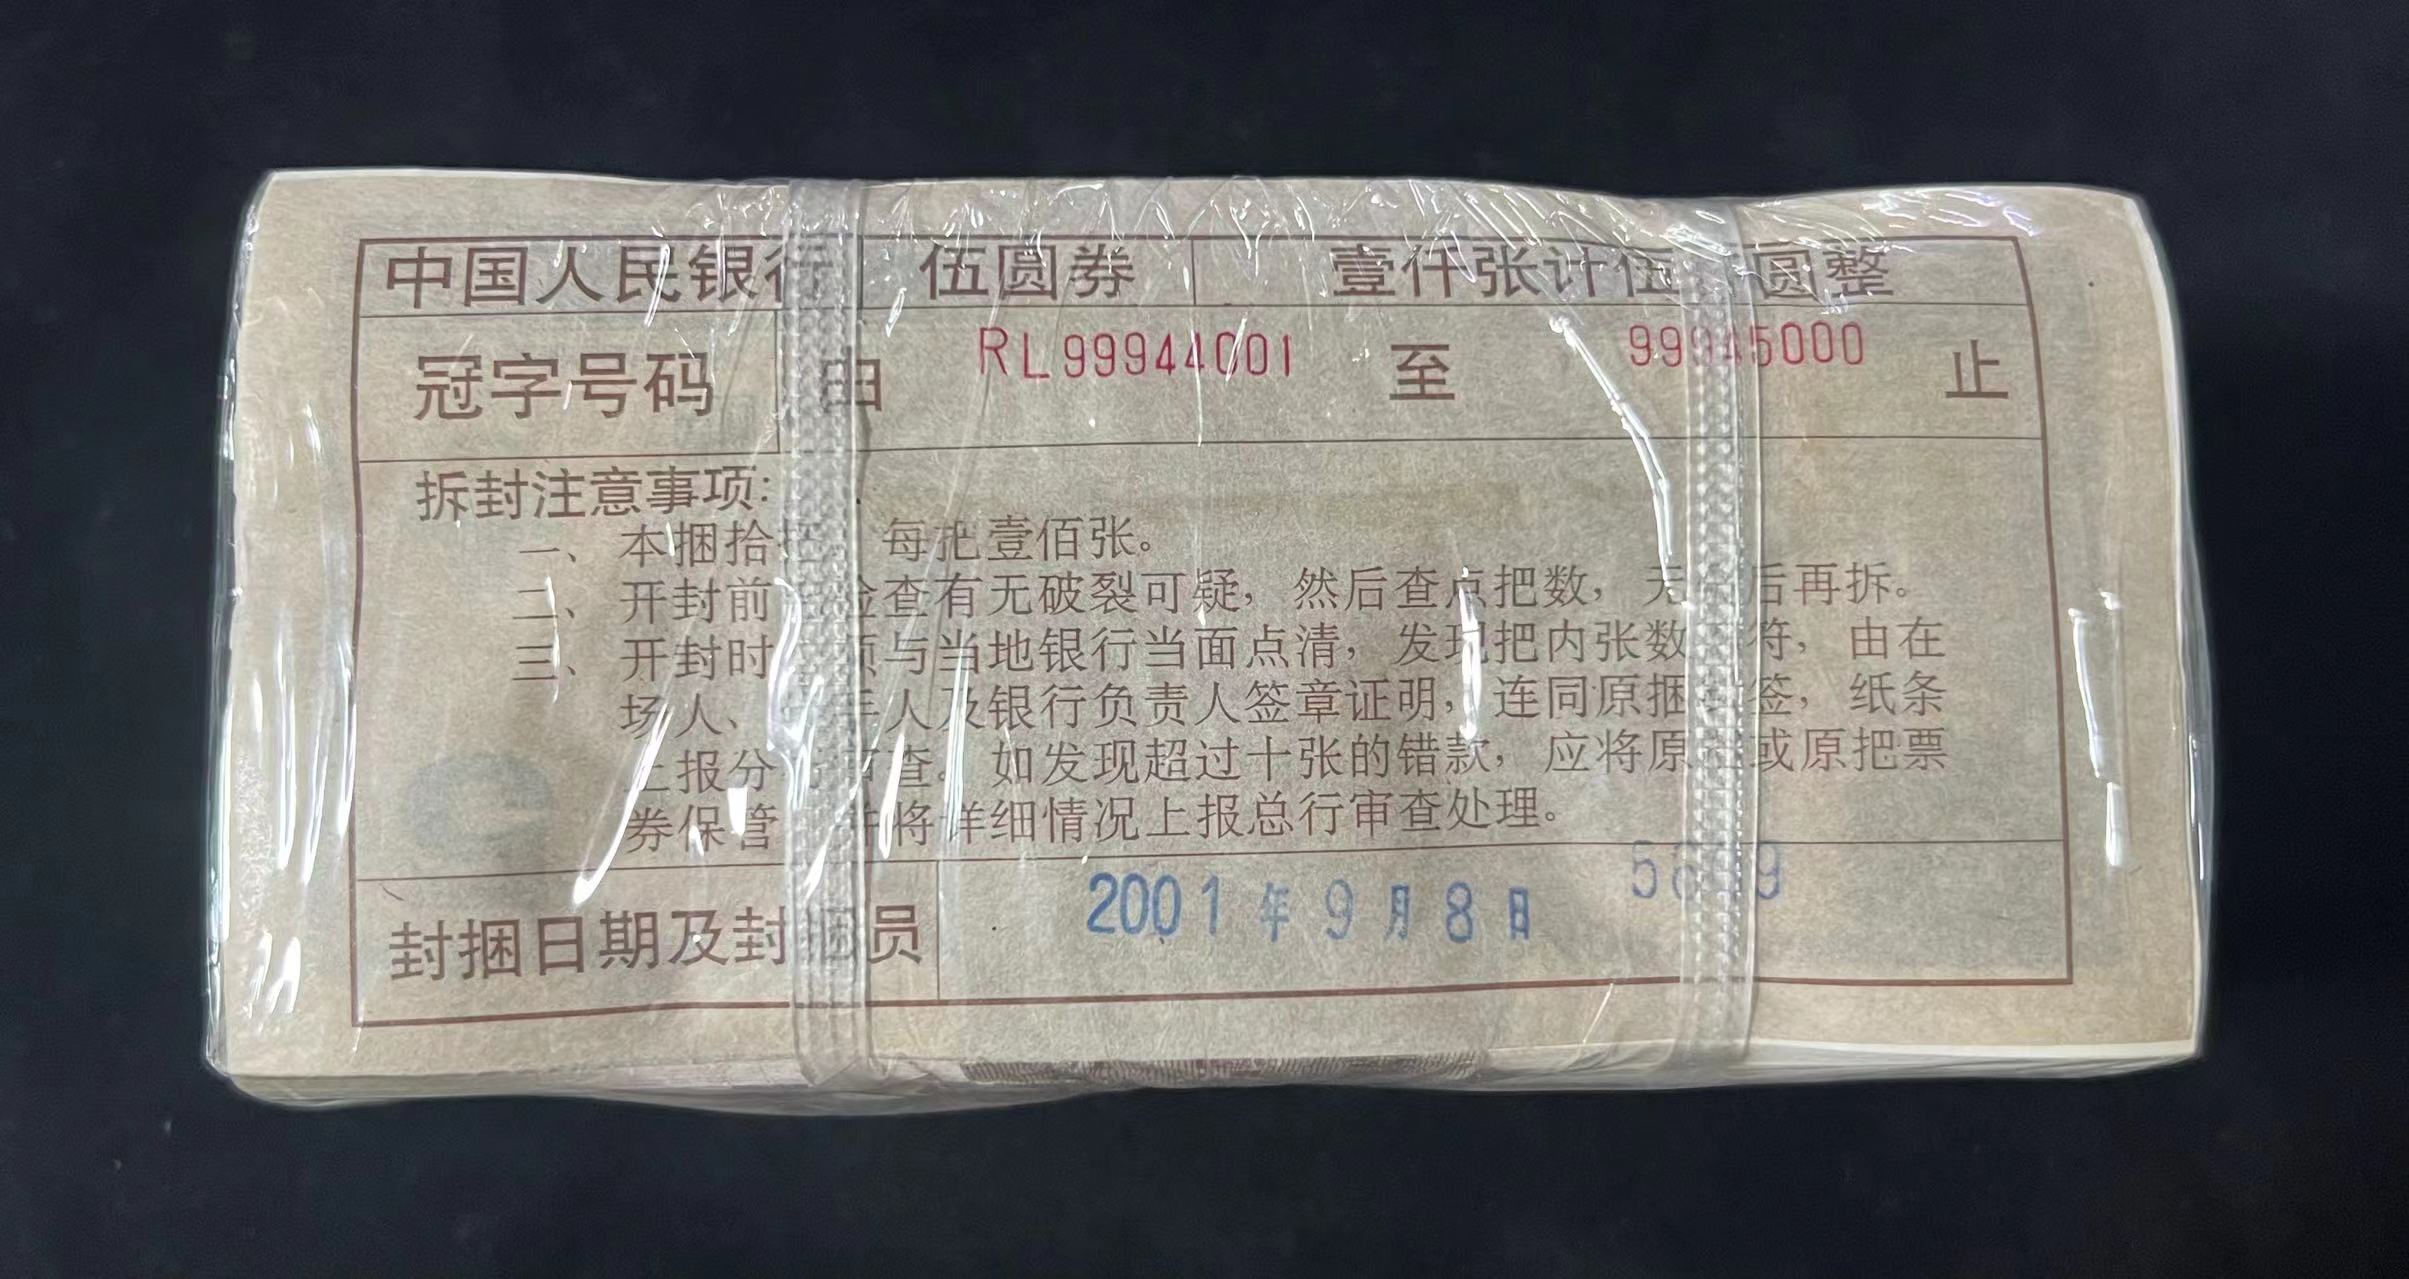 中国人民银行 伍圆券 壹仟张计伍 圆整
冠字号码 由 RL99944001 至 99945000 止
拆封注意事项：
一、本捆拾 每把壹佰张。
二、开封前 检查有无破裂可疑，然后查点把数，无 后再拆。
三、开封时 须与当地银行当面点清，发现把内张数 符，由在
场人、 手人及银行负责人签章证明，连同原捆 签，纸条
上报分 审查。如发现超过十张的错款，应将原 或原把票
券保管 并将详细情况上报总行审查处理。
封捆日期及封捆员 2001年9月8日